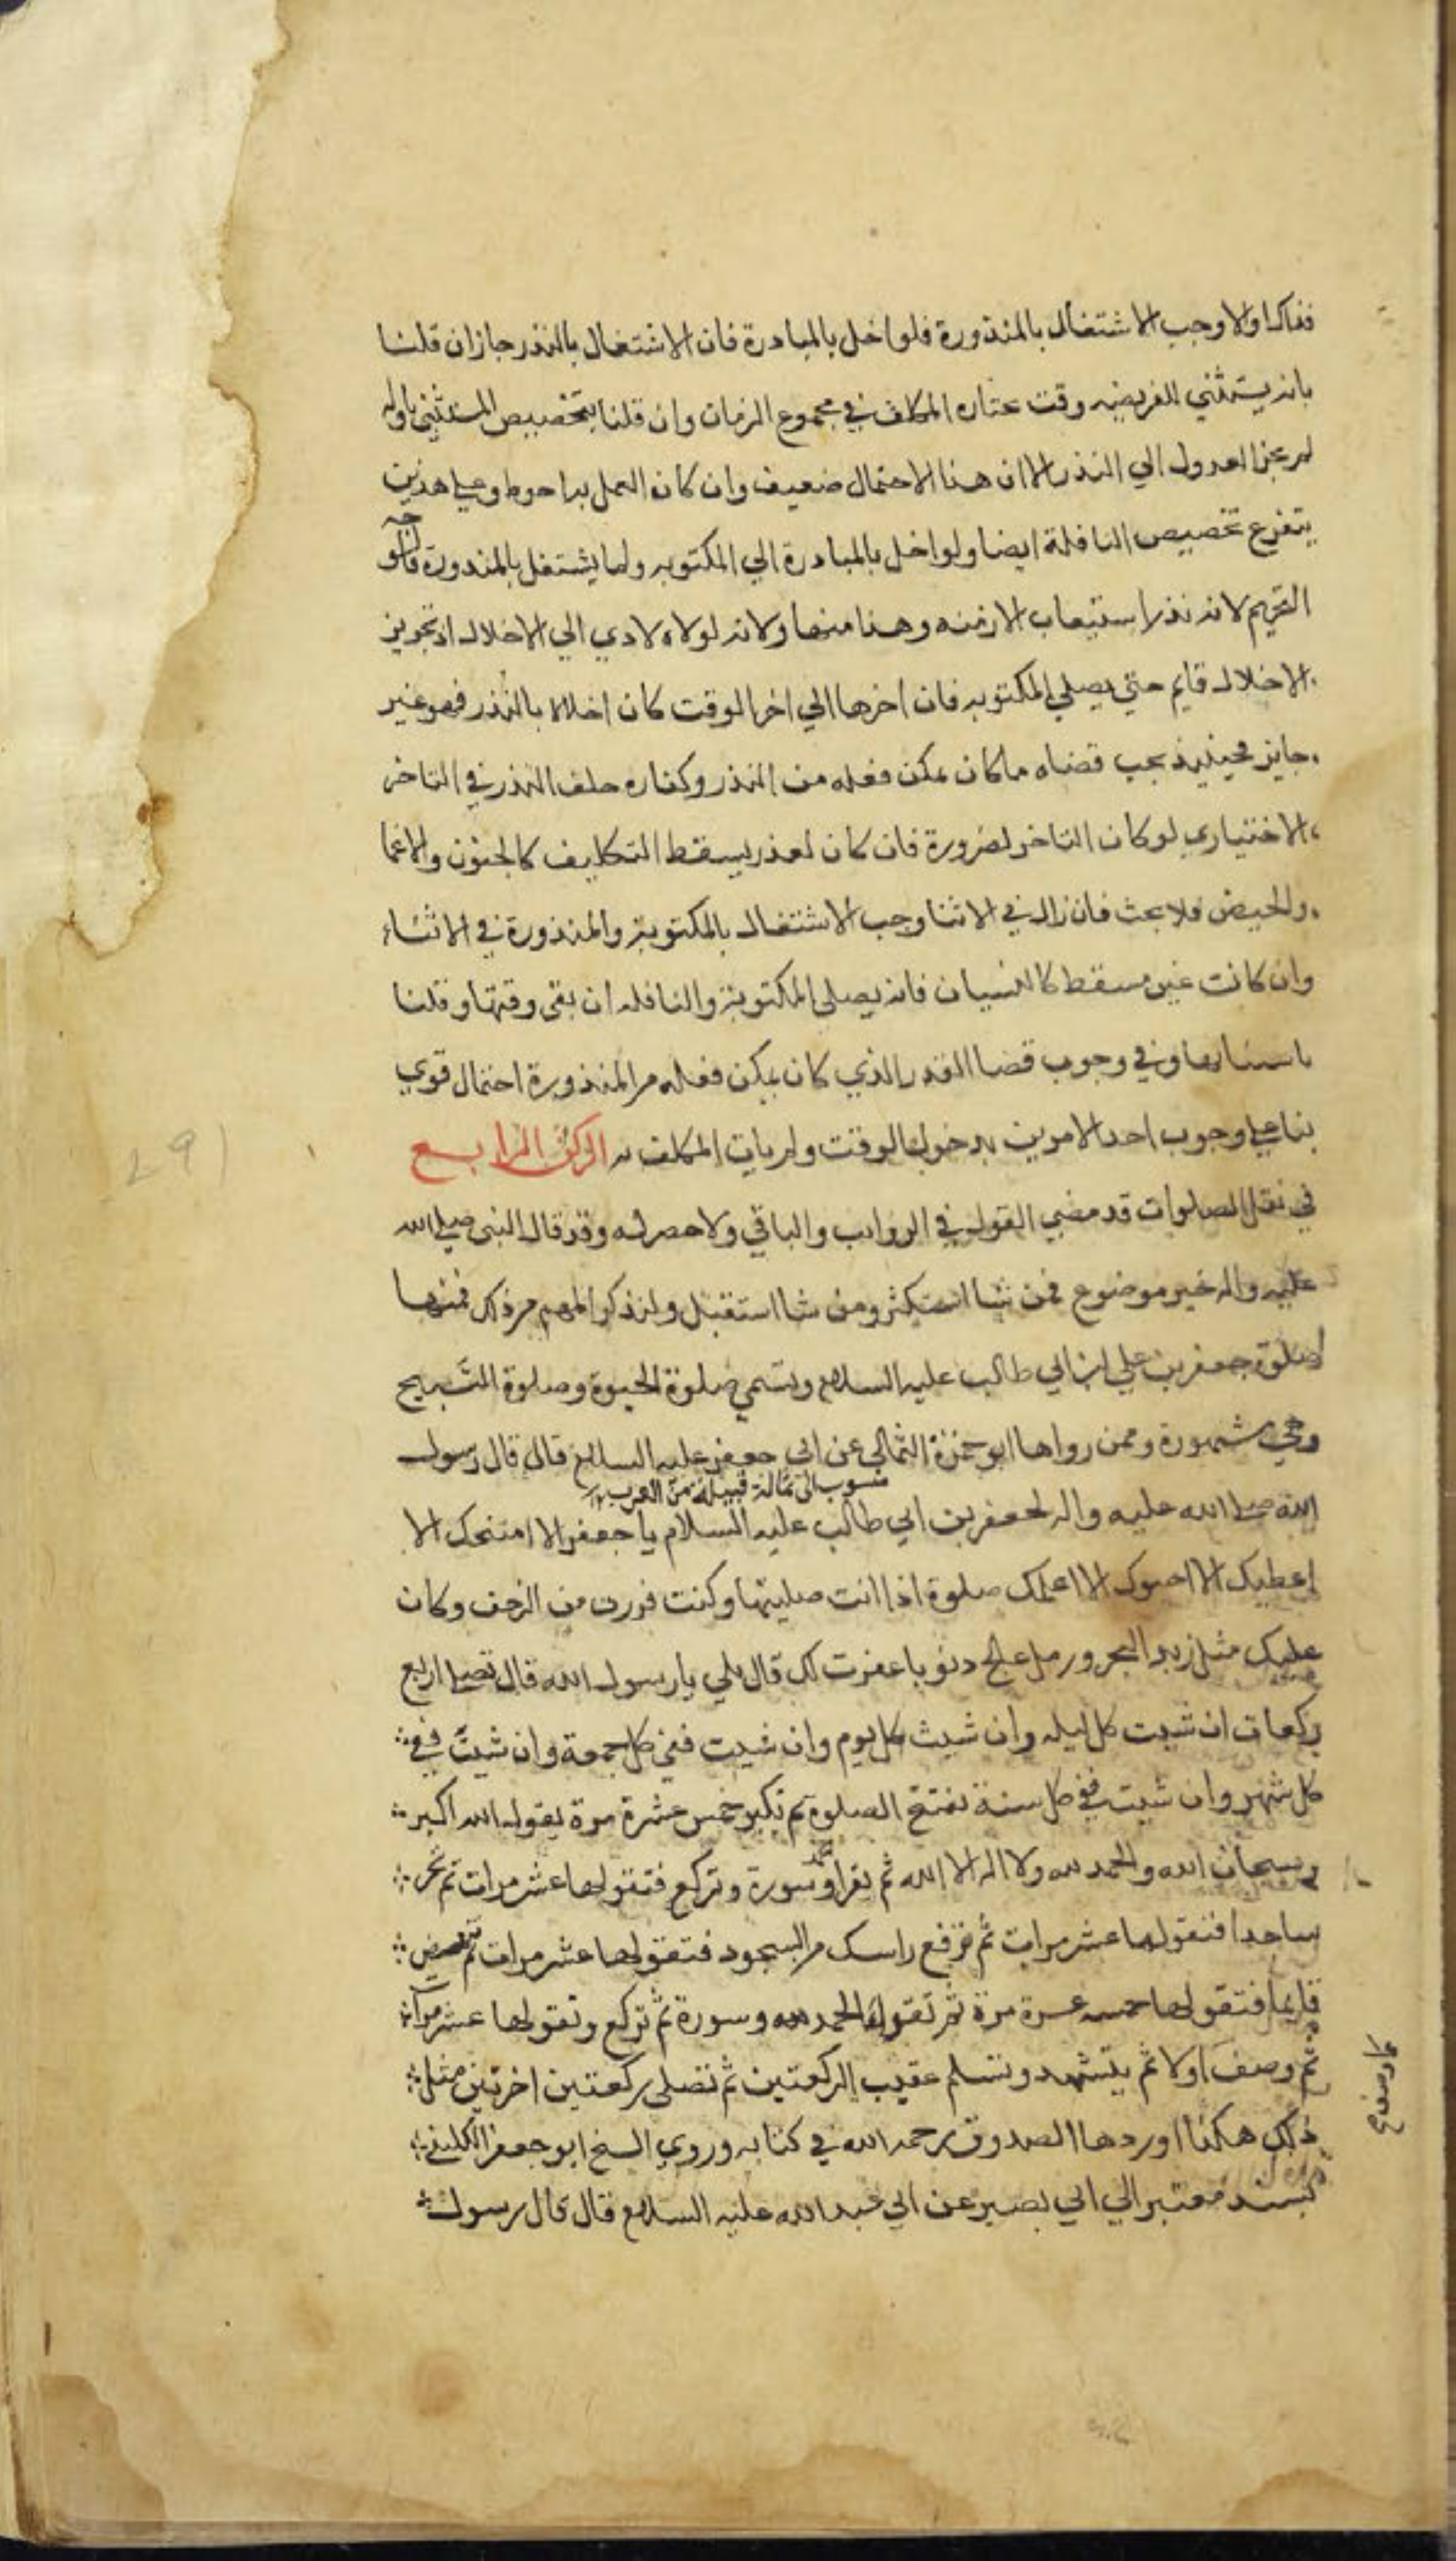 فذاك والا وجب الاشتغال بالمنذورة فلو اخل بالمبادرة فان الاشتغال بالنذر جاز ان قلنا
بانه يستثني الفريضه وقت يختاره المكلف في مجموع الزمان وان قلنا بتخصيص المستثني باوله
لم يجز العدول الي النذر الا ان هذا الاحتمال ضعيف وان كان العمل به احوط وعلي هذين
يتفرع تخصيص النافلة ايضا ولو اخل بالمبادرة الي المكتوبه ولما يشتغل بالمندورة فالوجه
التحريم لانه نذر استيعاب الازمنه وهذا منها ولانه لولاه لادي الي الاخلال اذ تجويز
الاخلال قايم حتي يصلي المكتوبه فان اخرها الي اخر الوقت كان اخلالا بالنذر فهو غير
جايز فحينيذ يجب قضاء ماكان يمكن فعله من النذر وكفاره خلف النذر في التاخر
الاختياري لو كان التاخر لضرورة فان كان لعذر يسقط التكليف كالجنون والاغما
والحيض فلا بحث فان زال في الاثنا وجب الاشتغال بالمكتوبة والمنذورة في الاثناء
وان كانت غير مسقط كالنسيان فانه يصلي المكتوبة والنافله ان بقي وقتها وقلنا
باستثنايها وفي وجوب قضا القدر الذي كان يمكن فعله من المنذورة احتمال قوي
بنا علي وجوب احد الامرين بدخول الوقت ولم يات المكلف به الركن الرابع
في نفل الصلوات قد مضي القول في الرواتب والباقي ولا حصر له وقد قال النبي صلي الله
عليه واله خير موضوع فمن شا استكثر ومن شا استقبل ولنذكر المهم من ذلك فمنها
صلوة جعفر بن علي ابن ابي طالب عليه السلام وتسمي صلوة الحبوة وصلوة التسبيح
وهي مشهورة وممن رواها ابو حمزة الثمالي عن ابي جعفر عليه السلام قال قال رسول
منسوب الى ثمالة قبيلة من العرب
الله صلي الله عليه واله لجعفر بن ابي طالب عليه السلام يا جعفر الا امنحك الا
اعطيك الا احبوك الا اعلمك صلوة اذا انت صليتها وكنت فررت من الزحف وكان
عليك مثل زبد البحر ورمل عالج دنوبا غفرت لك قال بلي يا رسول الله قال تصلي اربع
ركعات ان شيت كل ليله وان شيت كل يوم وان شيت ففي كل جمعة وان شيت في
كل شهر وان شيت ففي كل سنة تفتتح الصلوة ثم تكبر خمس عشرة مرة يقول الله اكبر
وسبحان الله والحمد لله ولا اله الا الله ثم تقرا الحمد وسورة وتركع فتقولها عشر مرات ثم تخر
ساجدا فتقولها عشر مرات ثم ترفع راسك من السجود فتقولها عشر مرات ثم تنهض
قايما فتقولها خمسه عسرة مرة ثم تقول الحمد لله وسورة ثم تركع وتقولها عشر مرات
ثم وصف اولا ثم يتشهد وتسلم عقيب الركعتين ثم تصلي ركعتين اخرتين مثل
ذلك هكذا اوردها الصدوق رحمه الله في كتابه وروي الشيخ ابو جعفر الكليني
بسند معتبر الي ابي بصير عن ابي عبد الله عليه السلام قال قال رسول
كما وصف
291